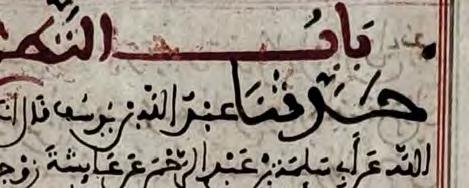 بَابُ التَّهَجُّ
حَدَّثَنَا عبد الله بن يوسف قال
الله عن أبي سلمة بن عبد الرحمن عن عايشة زوج